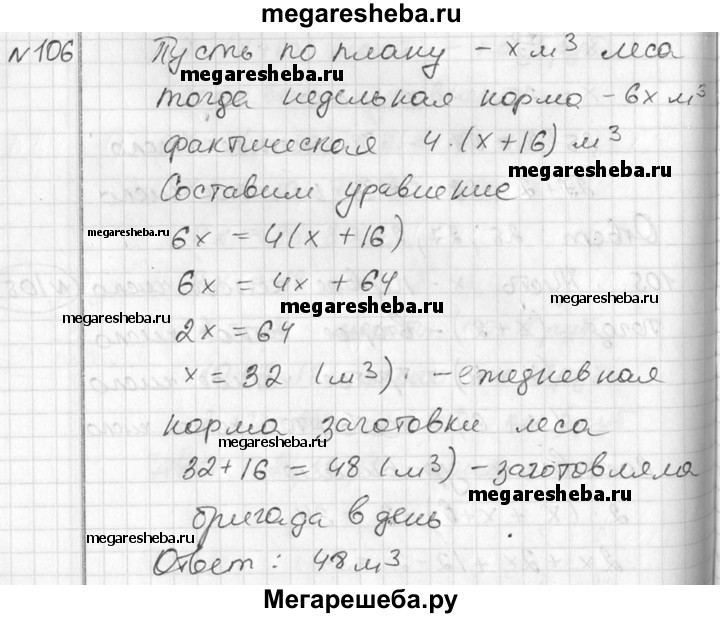 megaresheba.ru
№106 Пусть по плану – x м³ леса
megaresheba.ru
тогда недельная норма – 6x м³
фактическая 4·(x+16) м³
megaresheba.ru
Составим уравнение
megaresheba.ru
6x = 4(x+16)
6x = 4x + 64
megaresheba.ru
megaresheba.ru
megaresheba.ru
2x = 64
x = 32 (м³) – ежедневная
норма заготовки леса
megaresheba.ru
32+16 = 48 (м³) – заготовляла
megaresheba.ru
бригада в день
megaresheba.ru
Ответ: 48 м³
Мегарешеба.ру